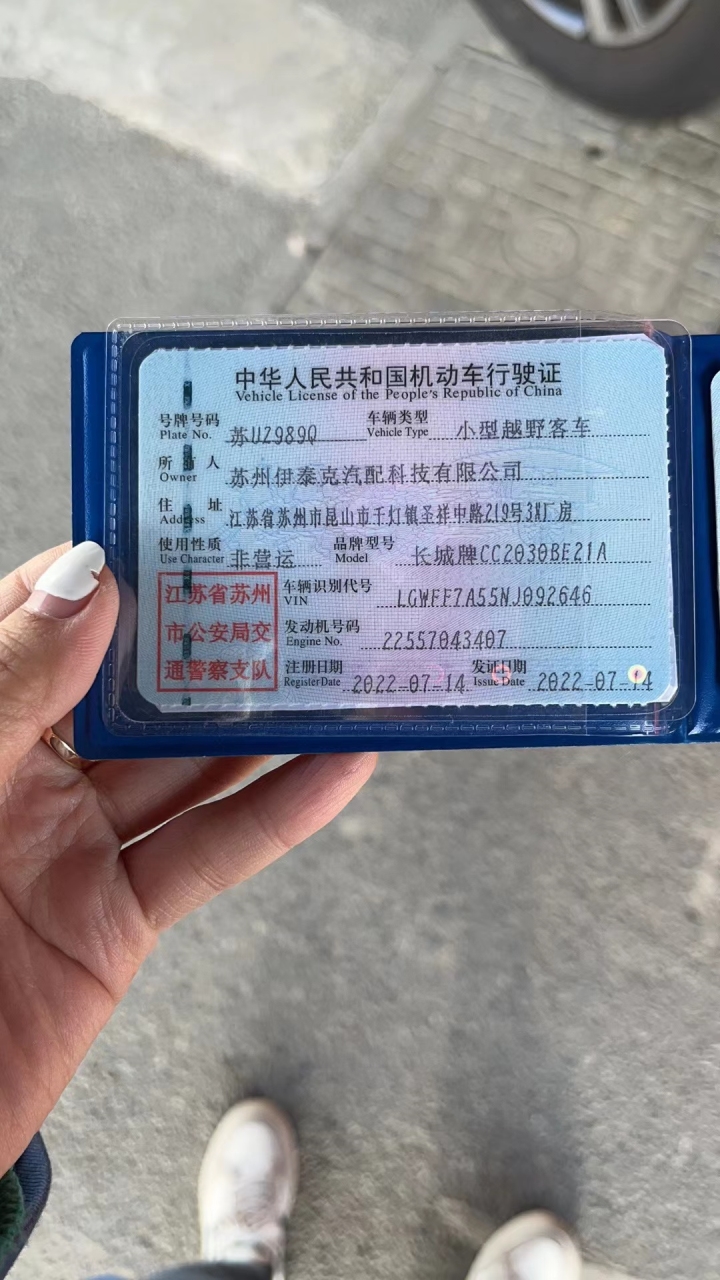 中华人民共和国机动车行驶证
Vehicle License of the People's Republic of China
号牌号码 苏UZ989Q 车辆类型 小型越野客车
Plate No. Vehicle Type
所 人 苏州伊泰克汽配科技有限公司
Owner
住 址 江苏省苏州市昆山市千灯镇圣祥中路219号3#厂房
Address
使用性质 非营运 品牌型号 长城牌CC2030BE21A
Use Character Model
江苏省苏州 车辆识别代号 LGWFF7A55NJ092646
VIN
市公安局交 发动机号码 22557043407
Engine No.
通警察支队 注册日期 2022-07-14 发证日期 2022-07-14
Register Date Issue Date